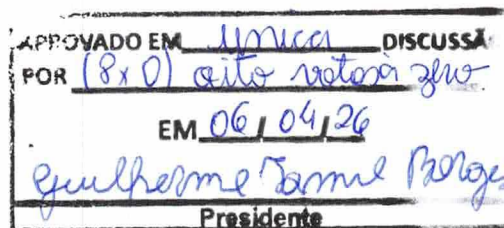 APROVADO EM Única DISCUSSÃ
POR (8x0) oito votos à zero
EM 06/04/26
Guilherme Jamil Borge
Presidente